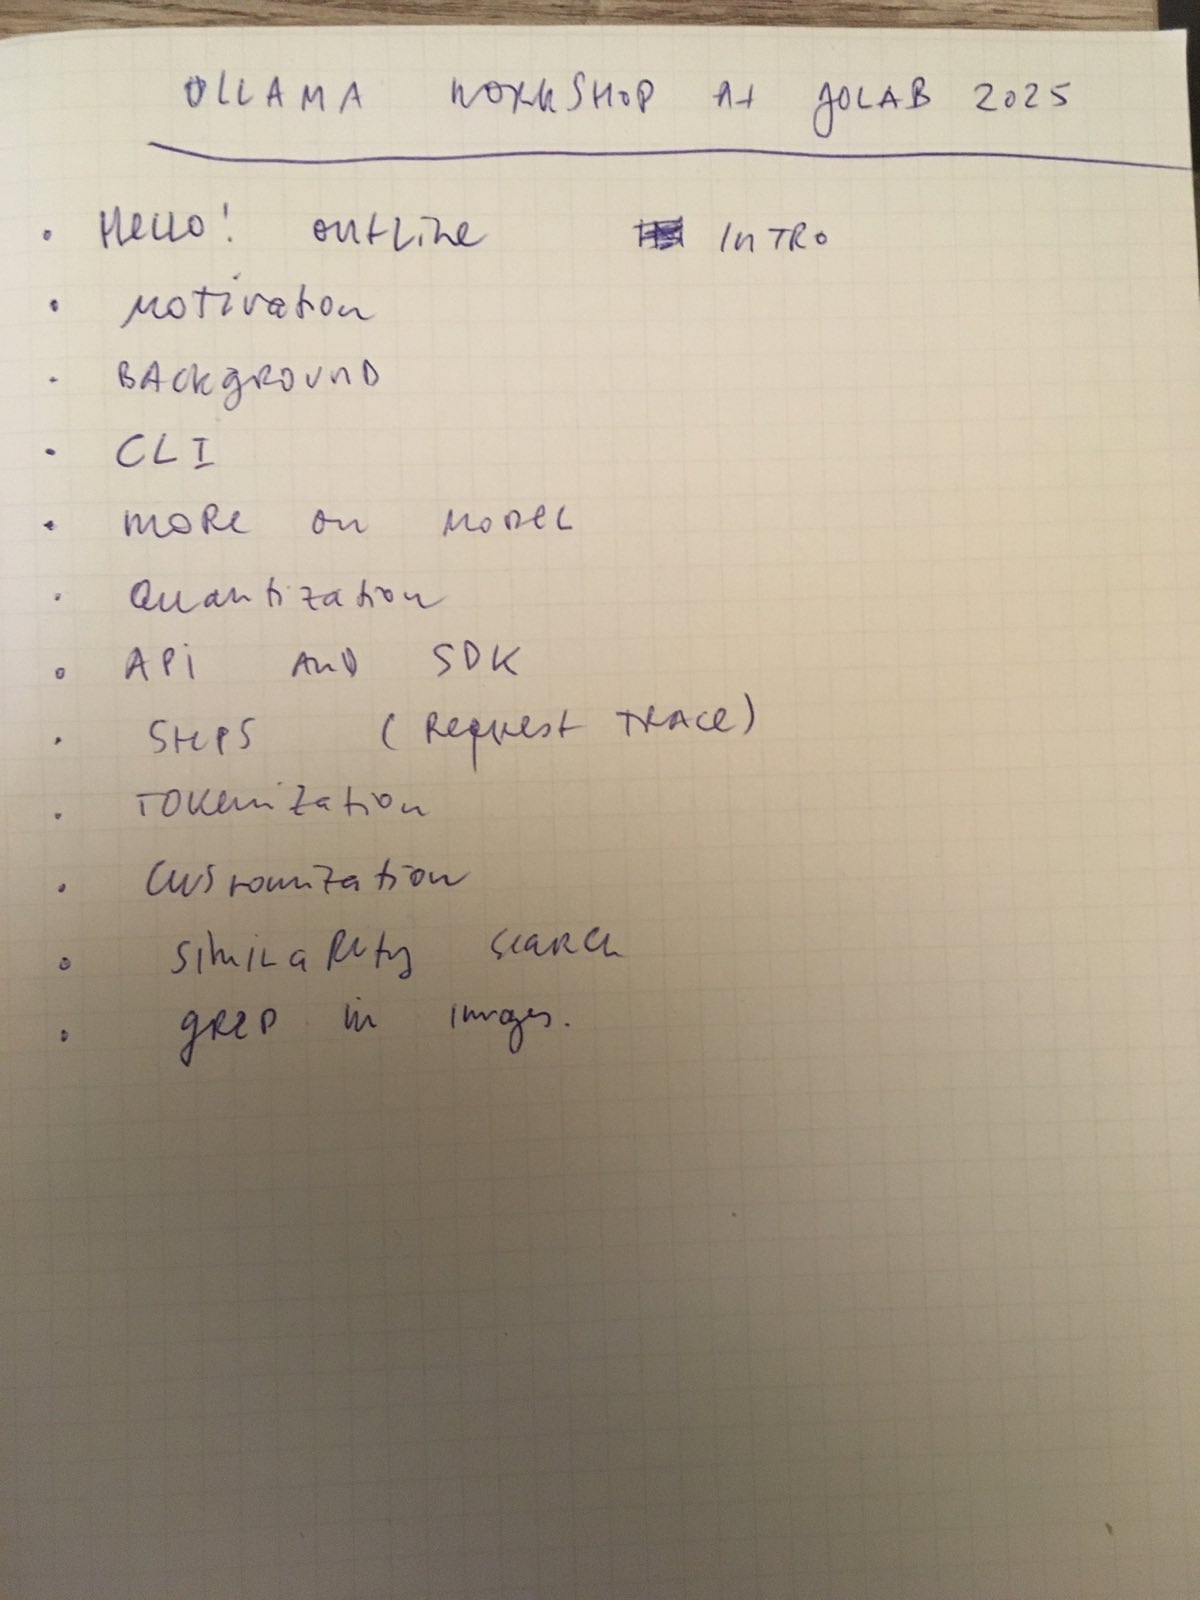 OLLAMA WORKSHOP At GOLAB 2025
• Hello! outline INTRO
• Motivation
• BACKGROUND
• CLI
• MORE on MODEL
• Quantization
• API AND SDK
• STEPS (Request TRACE)
• TOKenization
• Customization
• Similarity search
• grep in images.